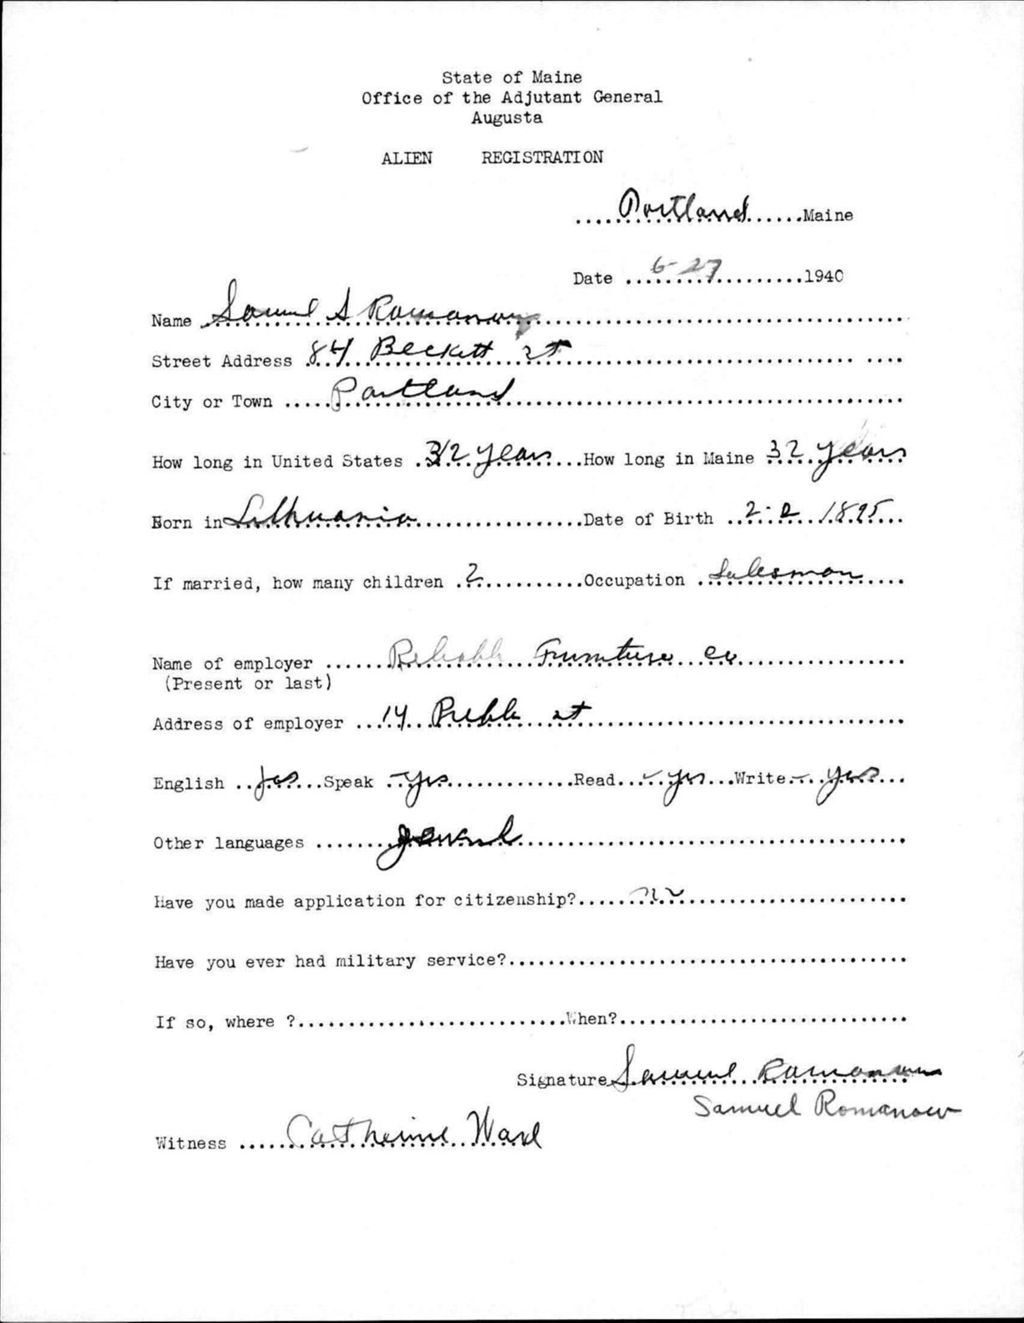 State of Maine
Office of the Adjutant General
Augusta
ALIEN REGISTRATION
....Portland......Maine
Date ...6-27...1940
Name Samuel S Romanow
Street Address 84 Beckett St
City or Town Portland
How long in United States 32 years How long in Maine 32 years
Born in Lithuania Date of Birth 2-2 1895
If married, how many children 2 Occupation Salesman
Name of employer Reliable Furniture Co
(Present or last)
Address of employer 14 Preble St
English yes Speak yes Read yes Write yes
Other languages Jewish
Have you made application for citizenship? no
Have you ever had military service?
If so, where ? When?
Signature Samuel Romanow
Samuel Romanow
Witness Catherine Ward